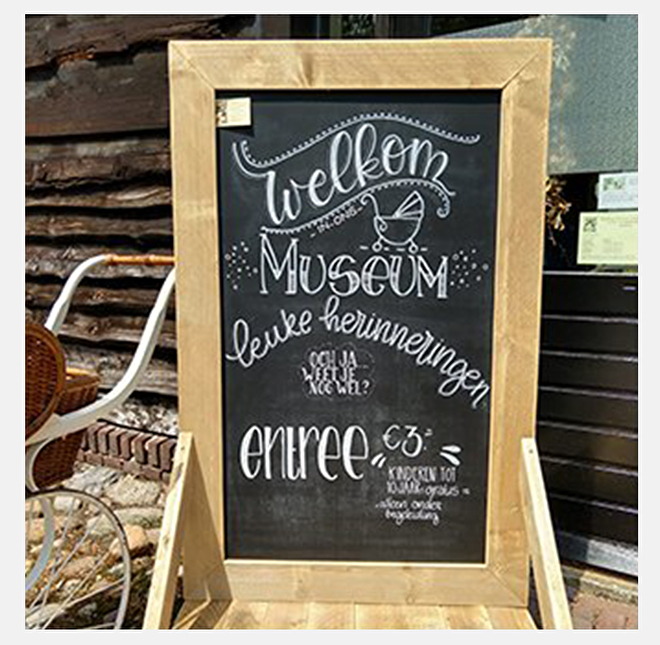 welkom
-IN ONS-
MUSEUM
leuke herinneringen
OCH JA
WEET JE
NOG WEL?
entree €3,-
KINDEREN TOT
10 JAAR gratis
alleen onder
begeleiding